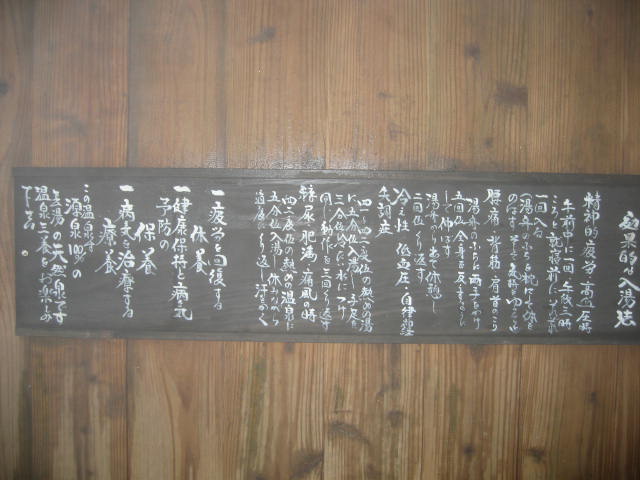 効果的な入湯法
精神的疲労 高血圧時
午前中に一回 午後三時
ころと就寝前に
一回入る
湯舟のふちを枕に体を
のばす そして長時間ゆっくり
腰痛・背筋 肩首のこり
湯舟のふちに両手をかけ
五回位全身を左右に
して伸ばす
湯舟から上り休憩し
二回位くり返す
冷え性 低血圧 自律神経
失調症
四一〜四二度位の熱めの湯
に五分位入湯し 手足を
三分位冷たい水につけ
同じ動作を三回くり返す
糖尿 肥満 痛風の時
四二度位の熱めの温泉に
五分位入湯し 休みながら
適度にくり返し汗をかく
一 疲労を回復する
休養
一 健康保持と病気
予防の
保養
一 病気を治療する
療養
この温泉は
源泉100%の
長湯の天然泉です
温泉三養をお楽しみ
下さい。